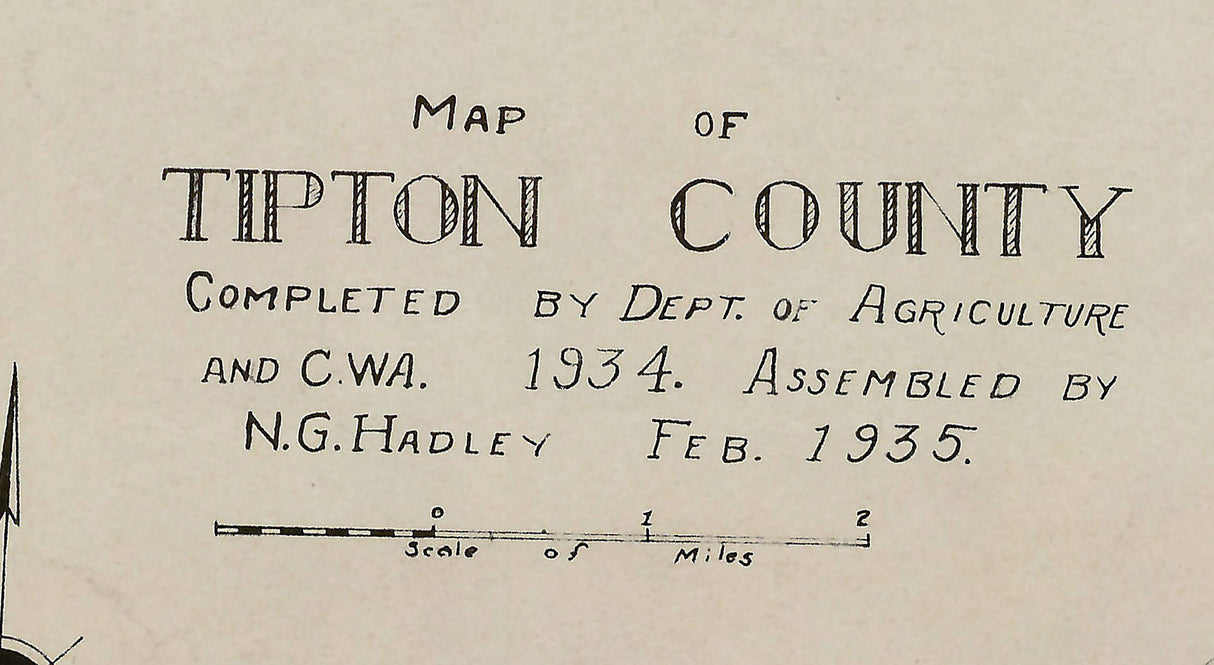 MAP OF
TIPTON COUNTY
COMPLETED BY DEPT. OF AGRICULTURE
AND C.WA. 1934. ASSEMBLED BY
N.G. HADLEY FEB. 1935.
0 1 2
Scale of Miles